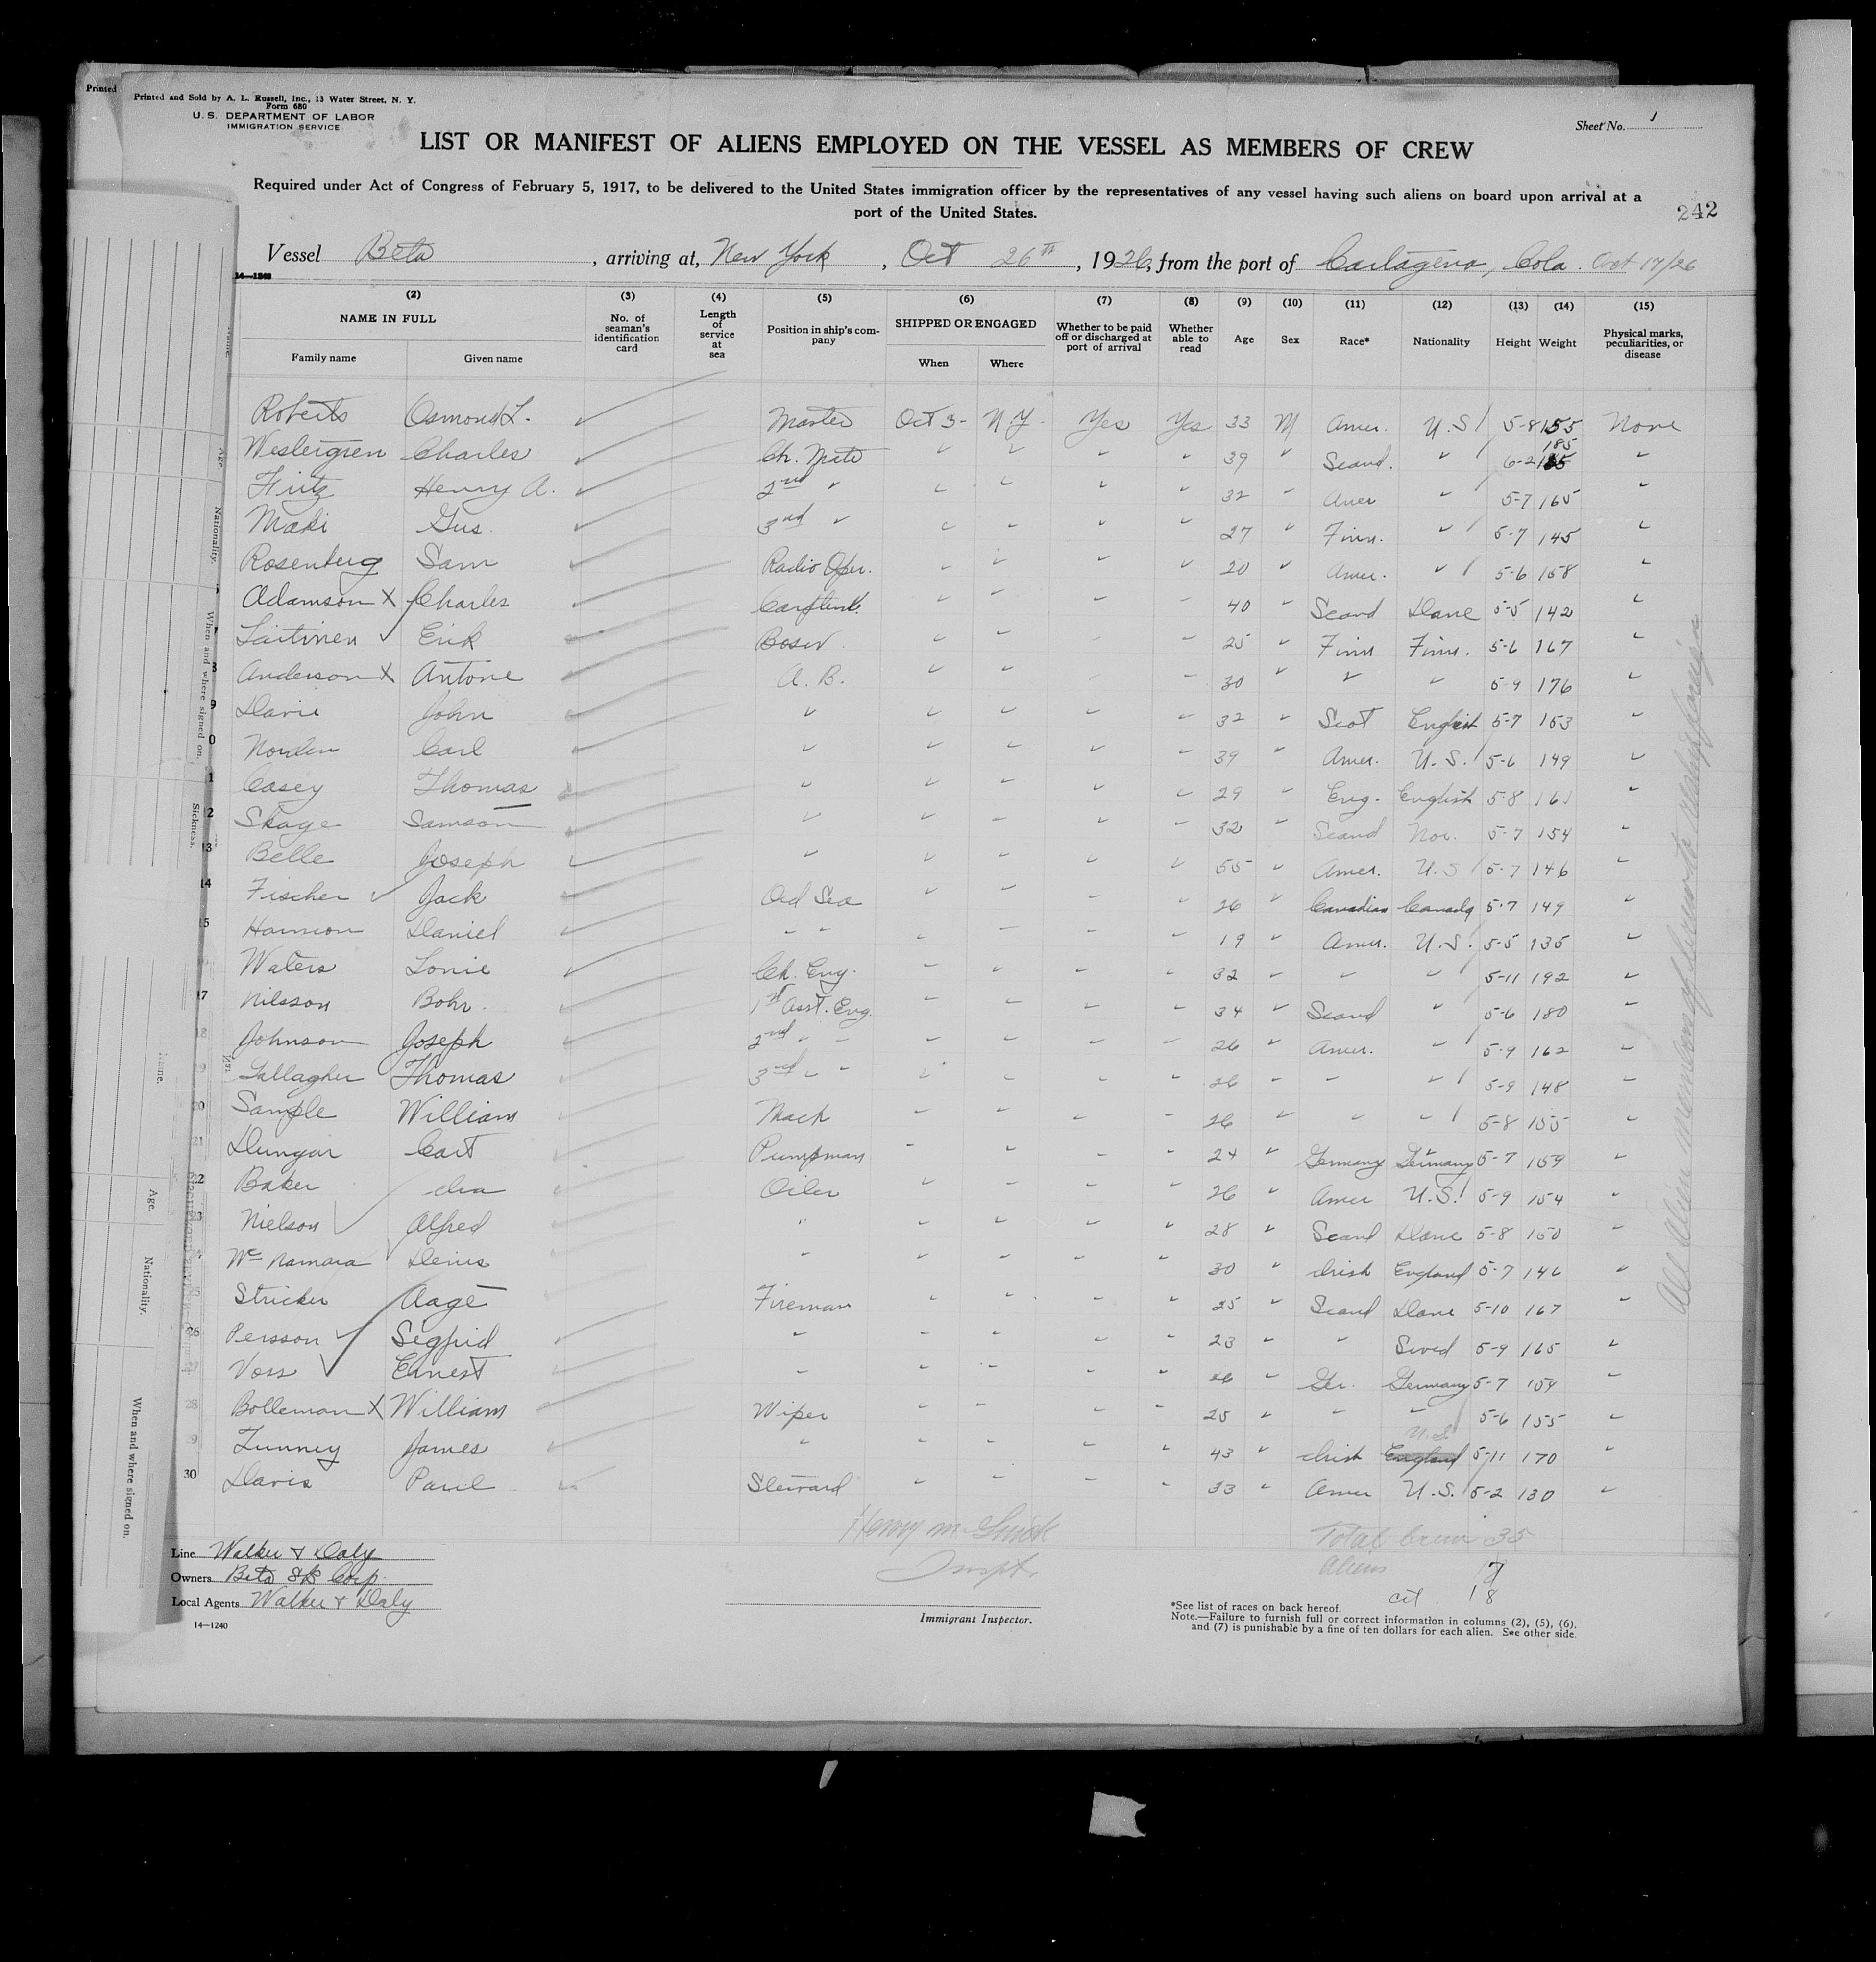 Printed
Printed and Sold by A. L. Russell, Inc., 13 Water Street, N. Y.
Form 680
U. S. DEPARTMENT OF LABOR
IMMIGRATION SERVICE
Sheet No. 1
LIST OR MANIFEST OF ALIENS EMPLOYED ON THE VESSEL AS MEMBERS OF CREW
Required under Act of Congress of February 5, 1917, to be delivered to the United States immigration officer by the representatives of any vessel having such aliens on board upon arrival at a
port of the United States.
242
Vessel Beta, arriving at, New York, Oct 26th, 1926, from the port of Cartagena, Cola. Oct 17/26
14—1240
(2) (3) (4) (5) (6) (7) (8) (9) (10) (11) (12) (13) (14) (15)
NAME IN FULL No. of seaman's identification card Length of service at sea Position in ship's company SHIPPED OR ENGAGED Whether to be paid off or discharged at port of arrival Whether able to read Age Sex Race* Nationality Height Weight Physical marks, peculiarities, or disease
Family name Given name When Where
Roberts Osmond L. Master Oct 3- N.Y. Yes Yes 33 M Amer. U.S. 5-8 155 None
Westergren Charles Ch. Mate " " " " 39 " Scand. " 6-2 185 "
Fritz Henry A. 2nd " " " " " 32 " Amer " 5-7 165 "
Maki Gus. 3rd " " " " " 27 " Finn. " 5-7 145 "
Rosenberg Sam Radio Oper. " " " " 20 " Amer. " 5-6 158 "
Adamson X Charles " " " " 40 " Scand Dane 5-5 142 "
Laitinen Erik Bosn. " " " 25 " Finn Finn. 5-6 167 "
Anderson X Antone A. B. " " " 30 " " " 5-9 176 "
9 Davie John " " " " " 32 " Scot English 5-7 153 "
0 Norden Carl " " " " " 39 " Amer. U.S. 5-6 149 "
1 Casey Thomas " " " " " 29 " Eng. English 5-8 161 "
2 Skage Samson " " " " " 32 " Scand Nor. 5-7 154 "
13 Belle Joseph " " " " " 55 " Amer. U.S 5-7 146 "
14 Fischer Jack Ord Sea " " " " 26 " Canadian Canada 5-7 149 "
15 Daniel " " " " " " 19 " Amer. U.S. 5-5 135 "
Waters Lonie Ch. Eng. " " " " 32 " " " 5-11 192 "
17 Nilsson Bohr. 1st Asst. Eng. " " " " 34 " Scand " 5-6 180 "
18 Johnson Joseph 2nd " " " " " " 26 " Amer. " 5-9 162 "
9 Gallagher Thomas 3rd " " " " " " 26 " " " 5-9 148 "
20 Sample William Mach " " " " 26 " " " 5-8 155 "
21 Dungar Cart Pumpman " " " " 24 " Germany Germany 5-7 159 "
22 Baker Oiler " " " " 26 " Amer U.S. 5-9 154 "
23 Nielson Alfred " " " " " 28 " Scand Dane 5-8 150 "
McNamara Denis " " " " " 30 " Irish England 5-7 146 "
Stricker Aage Fireman " " " " 25 " Scand Dane 5-10 167 "
26 Persson Segfrid " " " " " 23 " " Swed 5-9 165 "
27 Voss Ernest " " " " " 26 " Ger. Germany 5-7 159 "
28 Bolleman X William Wiper " " " " 25 " " " 5-6 155 "
U.S.
29 Tunney James " " " " " 43 " Irish England 5-11 170 "
30 Davis Paul Steward " " " " 33 " Amer U.S. 5-2 130 "
Inspt.
Total Crew 35
Aliens 17
cit. 18
Line Walker & Daly
Owners Beta SS Corp.
Local Agents Walker & Daly
14—1240
Immigrant Inspector.
*See list of races on back hereof.
Note.—Failure to furnish full or correct information in columns (2), (5), (6),
and (7) is punishable by a fine of ten dollars for each alien. See other side.
Age.
Nationality.
When and where signed on.
Sickness.
Name.
Age.
Nationality.
When and where signed on.